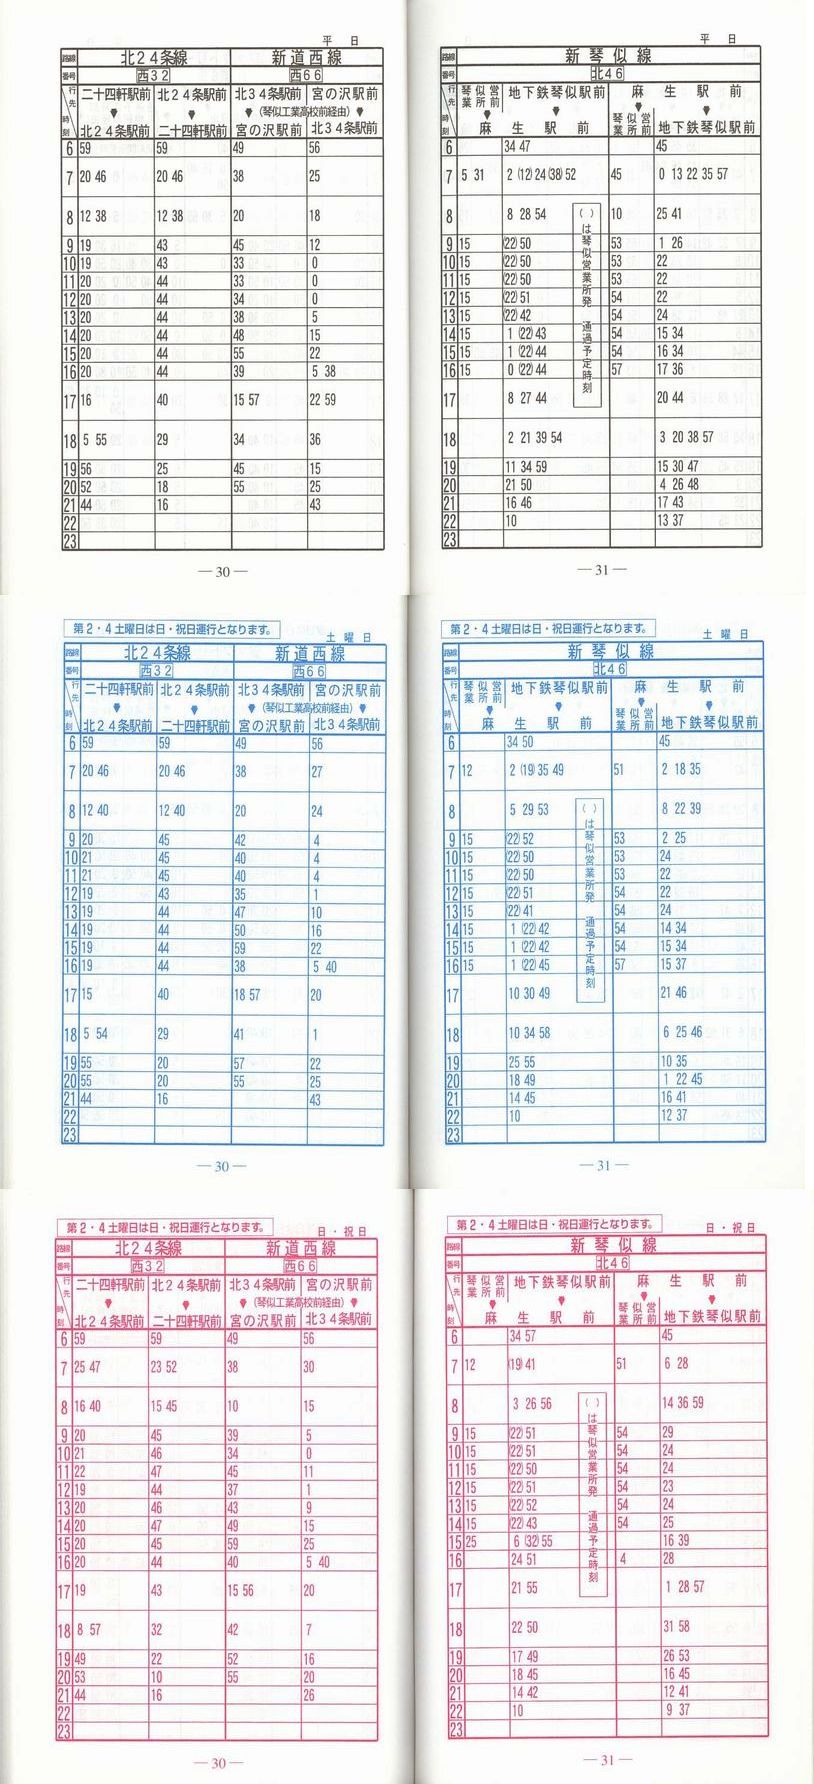 平 日
路線 北24条線 新道西線
番号 西32 西66
行先 時刻 二十四軒駅前 北24条駅前 北34条駅前 宮の沢駅前
(琴似工業高校前経由)
北24条駅前 二十四軒駅前 宮の沢駅前 北34条駅前
6 59 59 49 56
7 20 46 20 46 38 25
8 12 38 12 38 20 18
9 19 43 45 12
10 19 43 33 0
11 20 44 33 0
12 20 44 34 0
13 20 44 38 5
14 20 44 48 15
15 20 44 55 22
16 20 44 39 5 38
17 16 40 15 57 22 59
18 5 55 29 34 36
19 56 25 45 15
20 52 18 55 25
21 44 16 43
22
23
— 30 —
平 日
路線 新琴似線
番号 北46
行先 時刻 琴似営業所前 地下鉄琴似駅前 麻生駅前
麻生駅前 琴似営業所前 地下鉄琴似駅前
6 34 47 45
7 5 31 2 (12) 24 (38) 52 45 0 13 22 35 57
8 8 28 54 10 25 41
9 15 (22) 50 53 1 26
10 15 (22) 50 53 22
11 15 (22) 50 53 22
12 15 (22) 51 54 22
13 15 (22) 42 54 24
14 15 1 (22) 43 54 15 34
15 15 1 (22) 44 54 16 34
16 15 0 (22) 44 57 17 36
17 8 27 44 20 44
18 2 21 39 54 3 20 38 57
19 11 34 59 15 30 47
20 21 50 4 26 48
21 16 46 17 43
22 10 13 37
23
( )は琴似営業所発 通過予定時刻
— 31 —
第2・4土曜日は日・祝日運行となります。
土 曜 日
路線 北24条線 新道西線
番号 西32 西66
行先 時刻 二十四軒駅前 北24条駅前 北34条駅前 宮の沢駅前
(琴似工業高校前経由)
北24条駅前 二十四軒駅前 宮の沢駅前 北34条駅前
6 59 59 49 56
7 20 46 20 46 38 27
8 12 40 12 40 20 24
9 20 45 42 4
10 21 45 40 4
11 21 45 40 4
12 19 43 35 1
13 19 44 47 10
14 19 44 50 16
15 19 44 59 22
16 19 44 38 5 40
17 15 40 18 57 20
18 5 54 29 41 1
19 55 20 57 22
20 55 20 55 25
21 44 16 43
22
23
— 30 —
第2・4土曜日は日・祝日運行となります。
土 曜 日
路線 新琴似線
番号 北46
行先 時刻 琴似営業所前 地下鉄琴似駅前 麻生駅前
麻生駅前 琴似営業所前 地下鉄琴似駅前
6 34 50 45
7 12 2 (19) 35 49 51 2 18 35
8 5 29 53 8 22 39
9 15 (22) 52 53 2 25
10 15 (22) 50 53 24
11 15 (22) 50 53 22
12 15 (22) 51 54 22
13 15 (22) 41 54 24
14 15 1 (22) 42 54 14 34
15 15 1 (22) 42 54 15 34
16 15 1 (22) 45 57 15 37
17 10 30 49 21 46
18 10 34 58 6 25 46
19 25 55 10 35
20 18 49 1 22 45
21 14 45 16 41
22 10 12 37
23
( )は琴似営業所発 通過予定時刻
— 31 —
第2・4土曜日は日・祝日運行となります。
日・祝日
路線 北24条線 新道西線
番号 西32 西66
行先 時刻 二十四軒駅前 北24条駅前 北34条駅前 宮の沢駅前
(琴似工業高校前経由)
北24条駅前 二十四軒駅前 宮の沢駅前 北34条駅前
6 59 59 49 56
7 25 47 23 52 38 30
8 16 40 15 45 10 15
9 20 45 39 5
10 21 46 34 0
11 22 47 45 11
12 19 44 37 1
13 20 46 43 9
14 20 47 49 15
15 20 45 59 25
16 20 44 40 5 40
17 19 43 15 56 20
18 8 57 32 42 7
19 49 22 52 16
20 53 10 55 20
21 44 16 26
22
23
— 30 —
第2・4土曜日は日・祝日運行となります。
日・祝日
路線 新琴似線
番号 北46
行先 時刻 琴似営業所前 地下鉄琴似駅前 麻生駅前
麻生駅前 琴似営業所前 地下鉄琴似駅前
6 34 57 45
7 12 (19) 41 51 6 28
8 3 26 56 14 36 59
9 15 (22) 51 54 29
10 15 (22) 51 54 24
11 15 (22) 50 54 24
12 15 (22) 51 54 23
13 15 (22) 52 54 24
14 15 (22) 43 54 25
15 25 6 (32) 55 16 39
16 24 51 4 28
17 21 55 1 28 57
18 22 50 31 58
19 17 49 26 53
20 18 45 16 45
21 14 42 12 41
22 10 9 37
23
( )は琴似営業所発 通過予定時刻
— 31 —